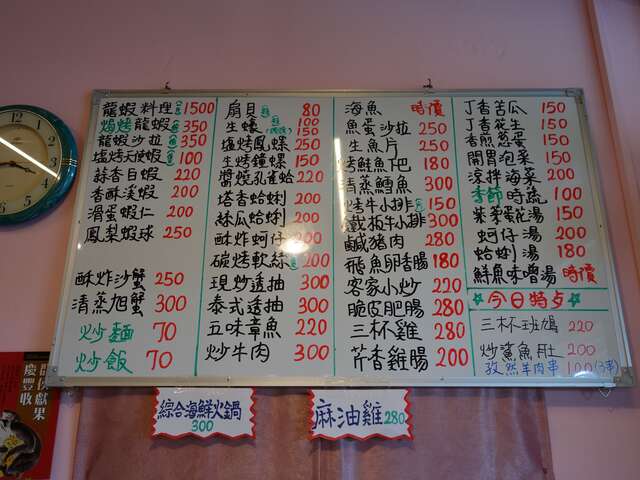 龍蝦料理 1500
焗烤龍蝦 350
龍蝦沙拉 350
塩烤天使蝦 100
蒜香白蝦 220
香酥溪蝦 200
滑蛋蝦仁 200
鳳梨蝦球 250
酥炸沙蟹 250
清蒸旭蟹 300
炒麵 70
炒飯 70
扇貝 80
生蠔 100
150
塩烤鳳螺 250
生烤鐘螺 150
醬燒孔雀蛤 220
塔香蛤蜊 200
絲瓜蛤蜊 200
酥炸蚵仔 200
碳烤軟絲 200
現炒透抽 300
泰式透抽 300
五味章魚 220
炒牛肉 300
海魚 時價
魚蛋沙拉 250
生魚片 250
烤鮭魚下巴 180
清蒸鱈魚 300
烤牛小排 150
鐵板牛小排 300
鹹豬肉 280
飛魚卵香腸 180
客家小炒 220
脆皮肥腸 280
三杯雞 280
芹香雞腸 200
丁香苦瓜 150
丁香花生 150
香煎蔥蛋 150
開胃泡菜 150
涼拌海菜 200
季節時蔬 100
紫菜蛋花湯 150
蚵仔湯 200
蛤蜊湯 180
鮮魚味噌湯 時價
今日特点
三杯班鳩 220
炒鯊魚肚 200
孜然羊肉串 100
綜合海鮮火鍋
300
麻油雞 280
慶豐收